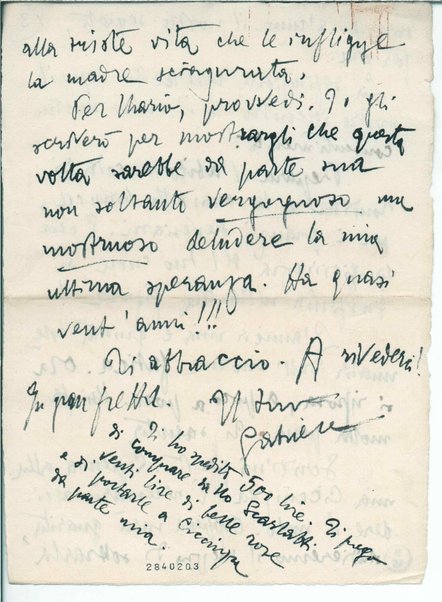 alla triste vita che le infligge
la madre sciagurata.
Per Mario, provvedi. Io gli
scriverò per mostrargli che questa
volta sarebbe da parte sua
non soltanto vergognoso ma
mostruoso deludere la mia
ultima speranza. Ha quasi
vent'anni!!!
Ti abbraccio A rivederci!
In gran fretta
Gabriele
Ti ho spedito 500 lire. Ti prego
di comprare da Scarlatti
e di venti lire di belle rose
portarle a Cicciuzza
da parte mia.
2840203